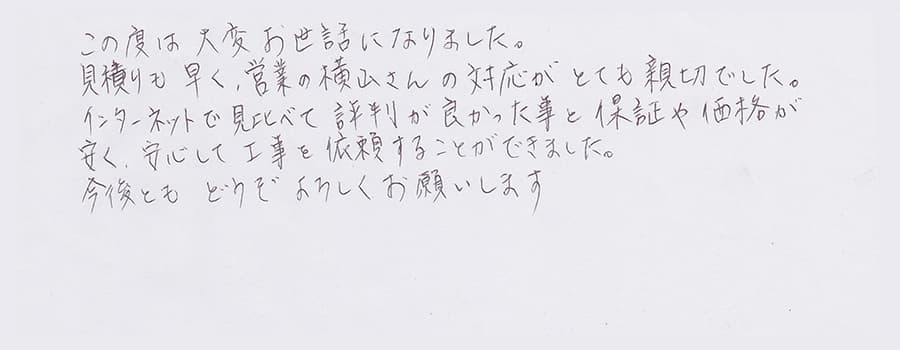 この度は大変お世話になりました。
見積りも早く、営業の横山さんの対応がとても親切でした。
インターネットで見比べて評判が良かった事と保証や価格が
安く、安心して工事を依頼することができました。
今後ともどうぞよろしくお願いします